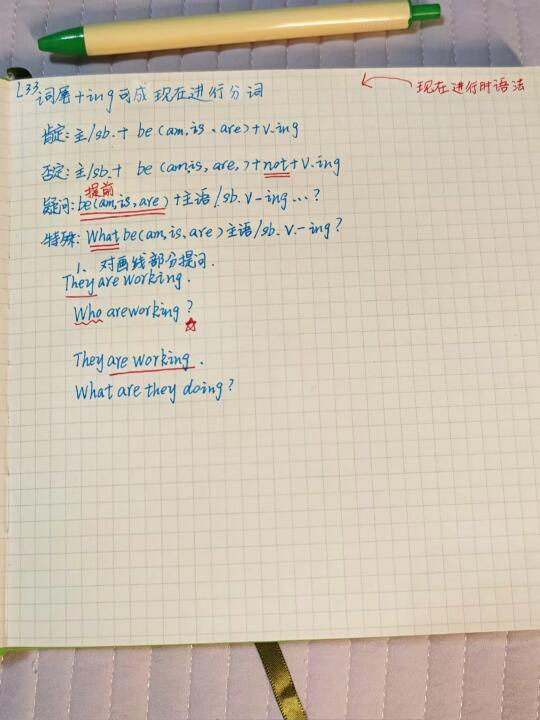 L33 词尾+ing可成现在进行分词
现在进行时语法
肯定:主/sb.+ be(am,is,are)+v.ing
否定:主/sb.+ be(am,is,are,)+not+v.ing
提前
疑问:be(am,is,are)+主语/sb.v-ing...?
特殊:What be(am,is,are)主语/sb.v.-ing?
1、对画线部分提问.
They are working.
Who are working?
They are working.
What are they doing?